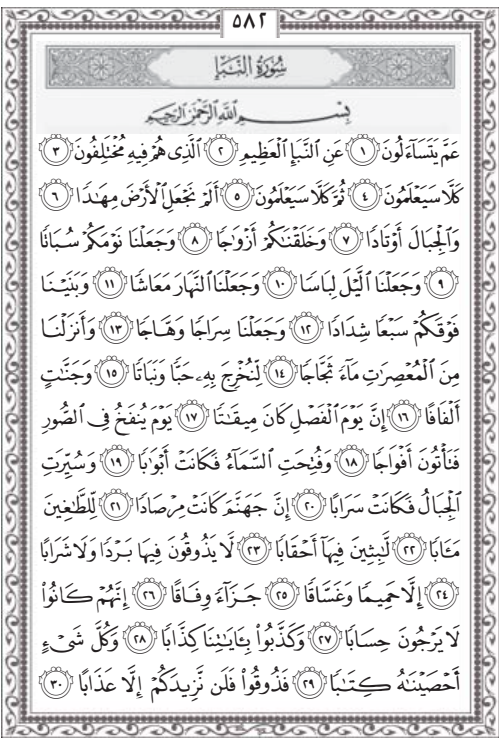 ٥٨٢
سُورَةُ النَّبَإِ
بِسْمِ اللَّهِ الرَّحْمَٰنِ الرَّحِيمِ
عَمَّ يَتَسَآءَلُونَ ١ عَنِ ٱلنَّبَإِ ٱلْعَظِيمِ ٢ ٱلَّذِى هُمْ فِيهِ مُخْتَلِفُونَ ٣
كَلَّا سَيَعْلَمُونَ ٤ ثُمَّ كَلَّا سَيَعْلَمُونَ ٥ أَلَمْ نَجْعَلِ ٱلْأَرْضَ مِهَٰدًا ٦
وَٱلْجِبَالَ أَوْتَادًا ٧ وَخَلَقْنَٰكُمْ أَزْوَٰجًا ٨ وَجَعَلْنَا نَوْمَكُمْ سُبَاتًا
٩ وَجَعَلْنَا ٱلَّيْلَ لِبَاسًا ١٠ وَجَعَلْنَا ٱلنَّهَارَ مَعَاشًا ١١ وَبَنَيْنَا
فَوْقَكُمْ سَبْعًا شِدَادًا ١٢ وَجَعَلْنَا سِرَاجًا وَهَّاجًا ١٣ وَأَنزَلْنَا
مِنَ ٱلْمُعْصِرَٰتِ مَآءً ثَجَّاجًا ١٤ لِّنُخْرِجَ بِهِۦ حَبًّا وَنَبَاتًا ١٥ وَجَنَّٰتٍ
أَلْفَافًا ١٦ إِنَّ يَوْمَ ٱلْفَصْلِ كَانَ مِيقَٰتًا ١٧ يَوْمَ يُنفَخُ فِى ٱلصُّورِ
فَتَأْتُونَ أَفْوَاجًا ١٨ وَفُتِحَتِ ٱلسَّمَآءُ فَكَانَتْ أَبْوَٰبًا ١٩ وَسُيِّرَتِ
ٱلْجِبَالُ فَكَانَتْ سَرَابًا ٢٠ إِنَّ جَهَنَّمَ كَانَتْ مِرْصَادًا ٢١ لِّلطَّٰغِينَ
مَـَٔابًا ٢٢ لَّٰبِثِينَ فِيهَآ أَحْقَابًا ٢٣ لَّا يَذُوقُونَ فِيهَا بَرْدًا وَلَا شَرَابًا
٢٤ إِلَّا حَمِيمًا وَغَسَّاقًا ٢٥ جَزَآءً وِفَاقًا ٢٦ إِنَّهُمْ كَانُوا۟
لَا يَرْجُونَ حِسَابًا ٢٧ وَكَذَّبُوا۟ بِـَٔايَٰتِنَا كِذَّابًا ٢٨ وَكُلَّ شَىْءٍ
أَحْصَيْنَٰهُ كِتَٰبًا ٢٩ فَذُوقُوا۟ فَلَن نَّزِيدَكُمْ إِلَّا عَذَابًا ٣٠